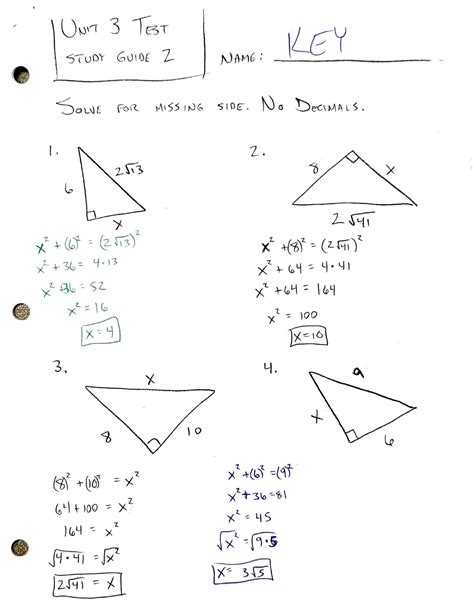 UNIT 3 TEST
STUDY GUIDE 2
NAME: KEY
SOLVE FOR MISSING SIDE. NO DECIMALS.
1.
2√13
6
x
x² + (6)² = (2√13)²
x² + 36 = 4·13
x² + 36 = 52
x² = 16
x = 4
2.
8
x
2√41
x² + (8)² = (2√41)²
x² + 64 = 4·41
x² + 64 = 164
x² = 100
x = 10
3.
x
8
10
(8)² + (10)² = x²
64 + 100 = x²
164 = x²
√4·41 = √x²
2√41 = x
4.
9
x
6
x² + (6)² = (9)²
x² + 36 = 81
x² = 45
√x² = √9·5
x = 3√5